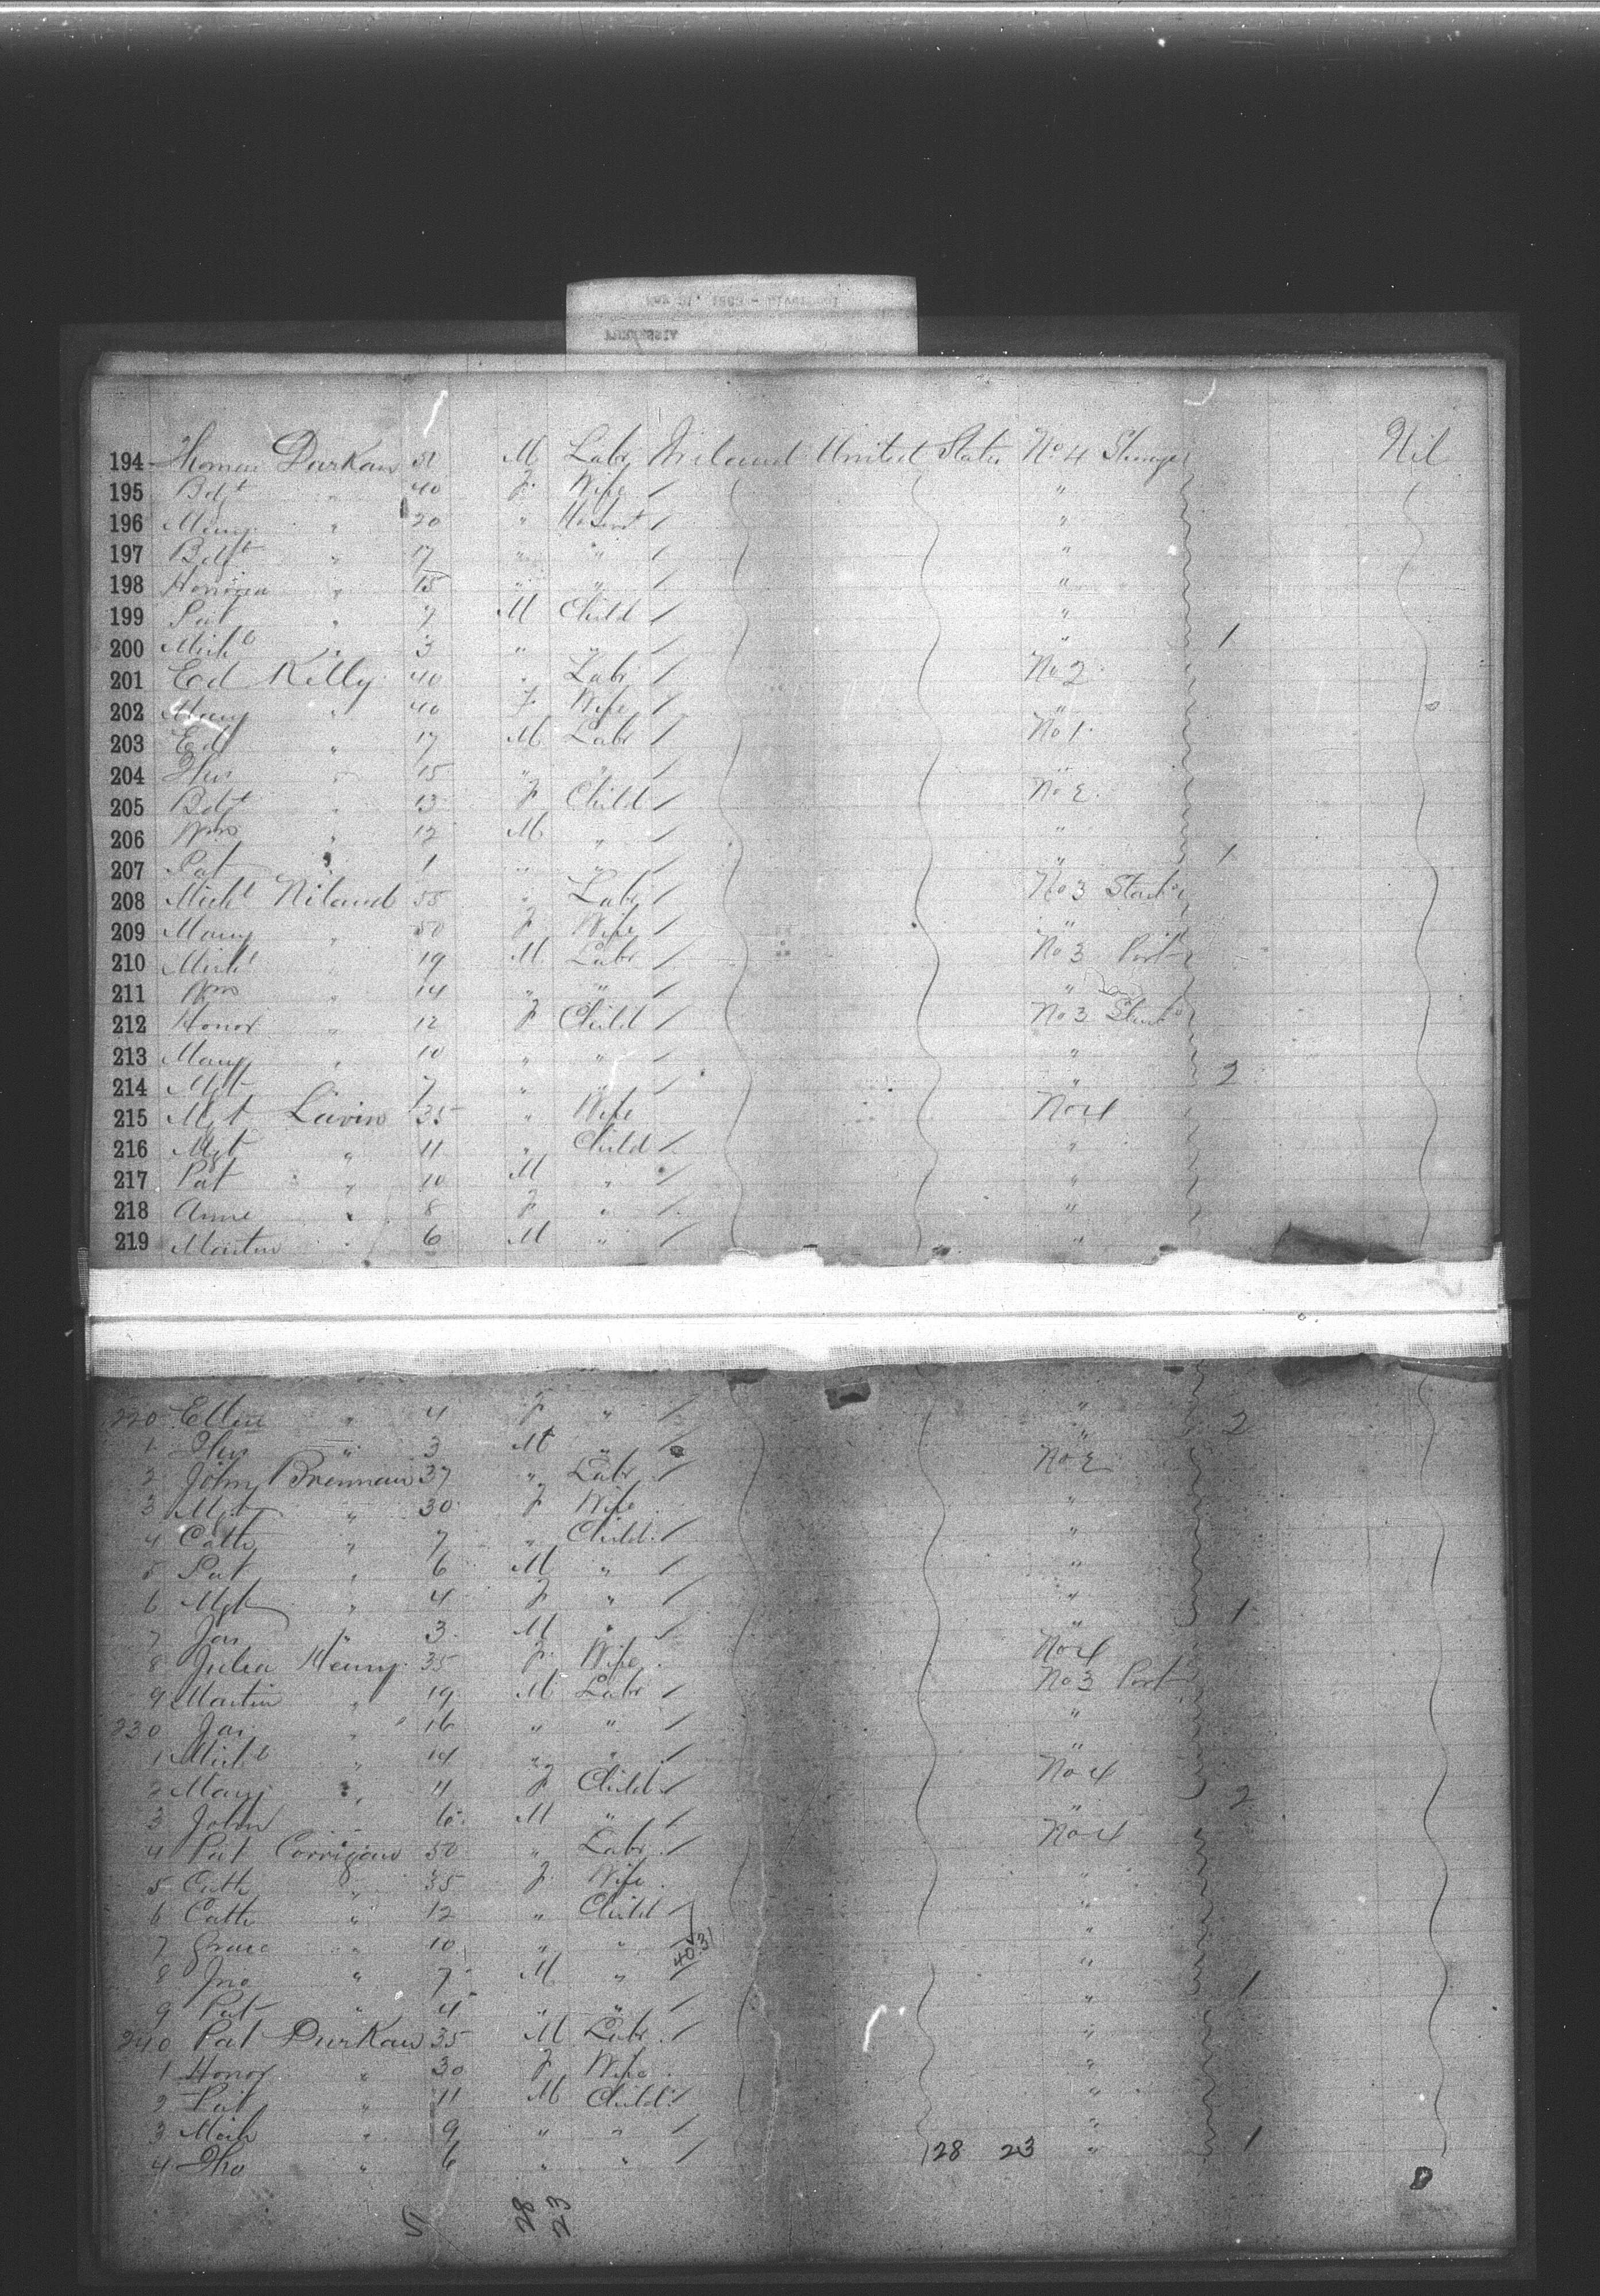 194 Thomas Durkan M Labr Ireland United States No 4 Steerage Nil
195 Bdgt " 40 F Wife / "
196 Mary " 20 " / "
197 Bdgt " 17 " " / "
198 Honoria " 15 " " / "
199 Pat " 7 M Child / "
200 Michl " 3 " " / " 1
201 Ed Kelly 40 " Labr / No 2
202 Mary " 40 F Wife / "
203 Ed " 17 M Labr / No 1
204 Thos " 15 " " / "
205 Bdgt " 13 F Child / No 2
206 Wm " 12 M " / "
207 Pat " 1 " " / " 1
208 Michl Niland 55 " Labr / No 3
209 Mary " 50 F Wife / "
210 Michl " 19 M Labr / No 3 Port
211 Wm " 14 " " / "
212 Honor " 12 F Child / No 3
213 Mary " 10 " " / "
214 Mgt " 7 " " / " 2
215 Mgt Lavin 35 " Wife No 4
216 Mgt " 11 " Child / "
217 Pat " 10 M " / "
218 Anne " 8 F " / "
219 Martin " 6 M " / "
220 Ellen " 4 F " / " 2
1 Thos " 3 M " / "
2 John Brennan 37 " Labr / No 2
3 Mgt " 30 F Wife "
4 Cath " 7 " Child / "
5 Pat " 6 M " / "
6 Mgt " 4 F " / " 1
7 Jas " 3 M " / "
8 Julia Henry 35 F Wife No 4
9 Martin " 19 M Labr / No 3 Port
230 Jas " 16 " " / "
1 Michl " 14 " " / "
2 Mary " F Child / No 4 2
3 John M " / "
4 Pat Corrigan 50 " Labr / No 4
5 Cath " 35 F Wife "
6 Cath " 12 " Child / "
7 Grace " 10 " " / "
8 Jno " 7 M " / " 1
9 Pat " 4 " " / "
240 Pat Durkan 35 M Labr / "
1 Honor " 30 F Wife "
2 Pat " 11 M Child / "
3 Mich " 9 " " / "
4 Tho " 6 " " / 28 23 " 1
28 23